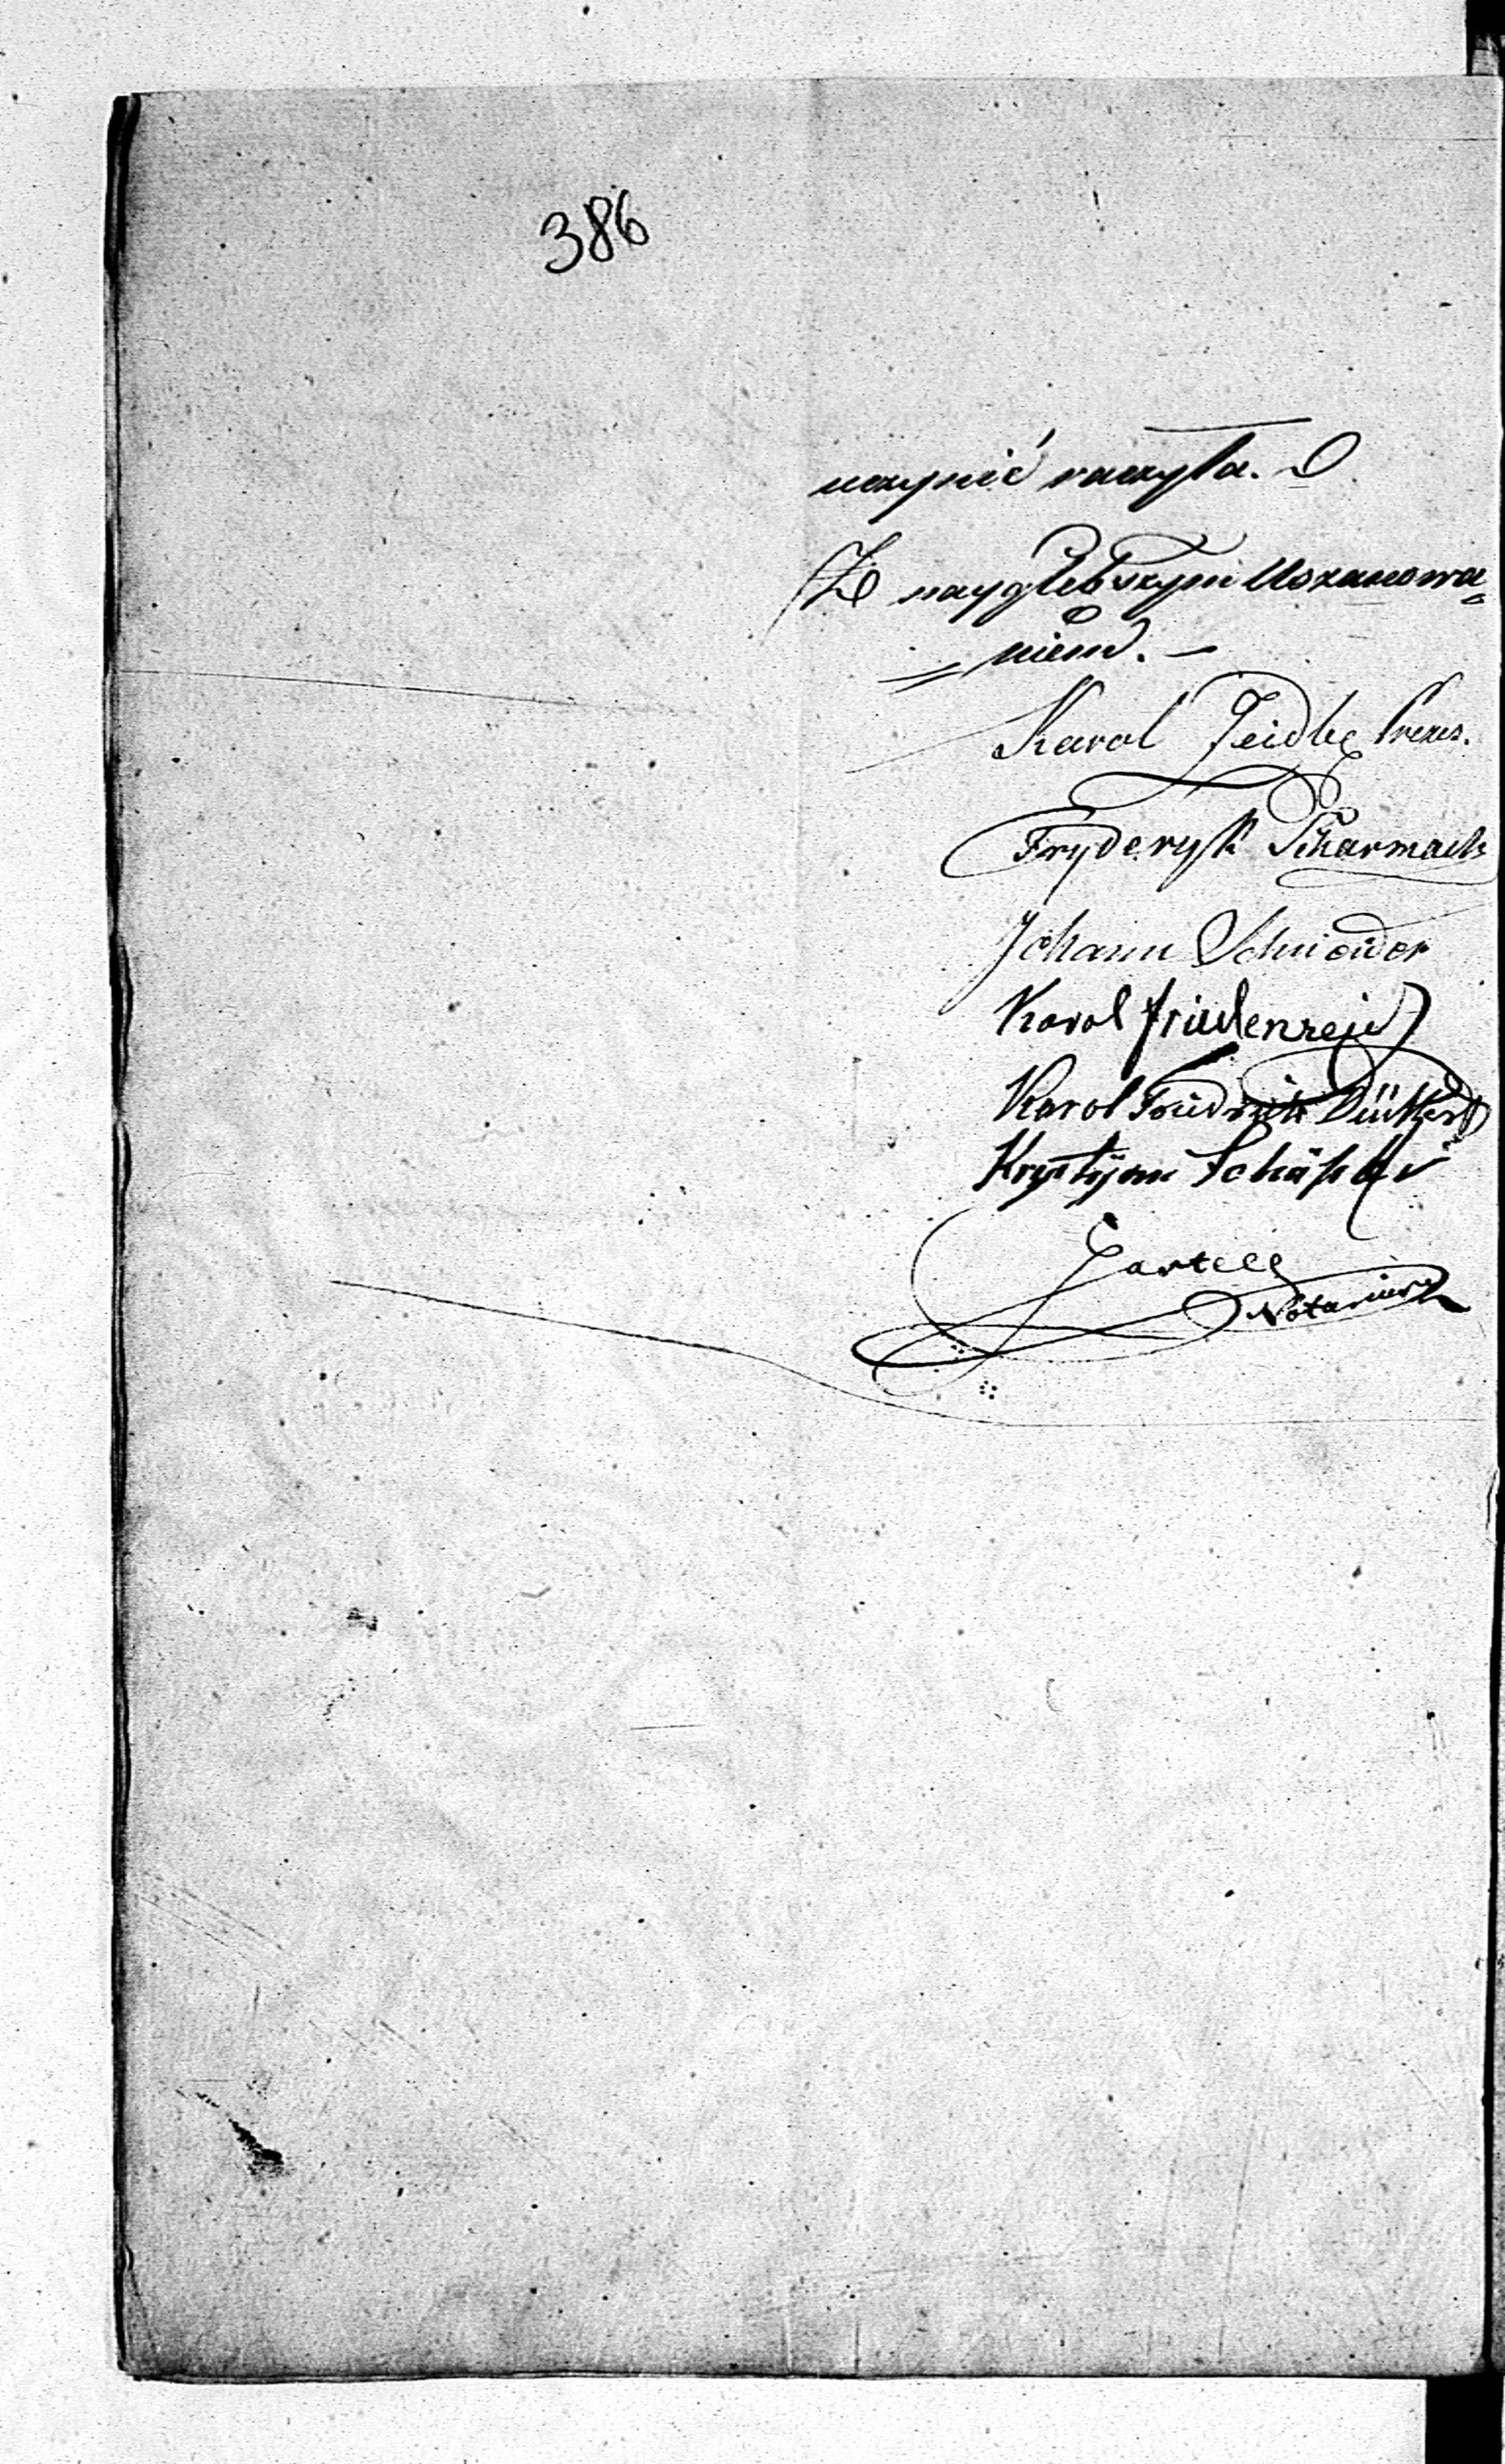 386
uczynić raczyła.
Z naygłębszym Uszanowa=
niem. —
Karol Zeidler Prezes.
Fryderyk Scharmach
Johann Schneider
Karol Friedenreich
Karol Friedrich
Krystyan Schäffer
Notariusz